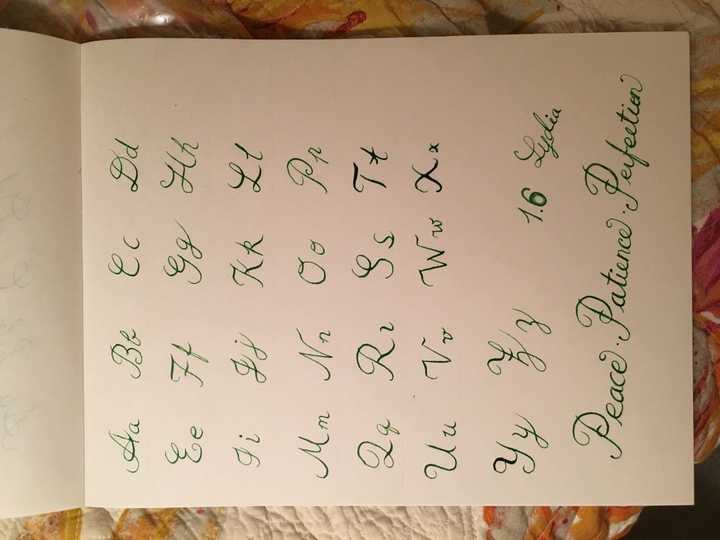 Aa Bb Cc Dd
Ee Ff Gg Hh
Ii Jj Kk Ll
Mm Nn Oo Pp
Qq Rr Ss Tt
Uu Vv Ww Xx
Yy Zz 1.6 Lydia
Peace. Patience. Perfection